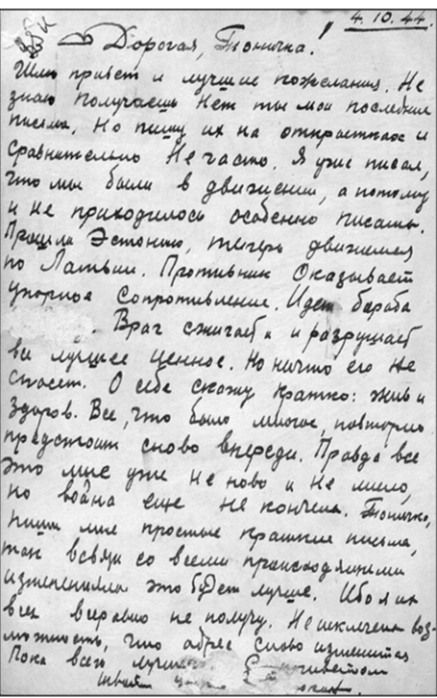 4.10.44.
Дорогая, Тоничка!
Шлю привет и лучшие пожелания. Не
знаю получаешь нет ты мои последние
письма, но пишу их на открытках и
сравнительно не часто. Я уже писал,
что мы были в движении, а потому
и не приходилось особенно писать.
Прошли Эстонию, теперь движемся
по Латвии. Противник оказывает
упорное сопротивление. Идет борьба
. Враг сжигает и разрушает
все лучшее ценное. Но ничто его не
спасет. О себе скажу кратко: жив и
здоров. Все, что было многое, повторно
предстоит снова впереди. Правда все
это мне уже не ново и не мило,
но война еще не кончена. Тоничка,
пиши мне простые краткие письма,
так всвязи со всеми происходящими
изменениями это будет лучше. Ибо я их
всех всеравно не получу. Не исключена воз-
можность, что адрес снова изменится
Пока всего лучшего. С приветом
твой